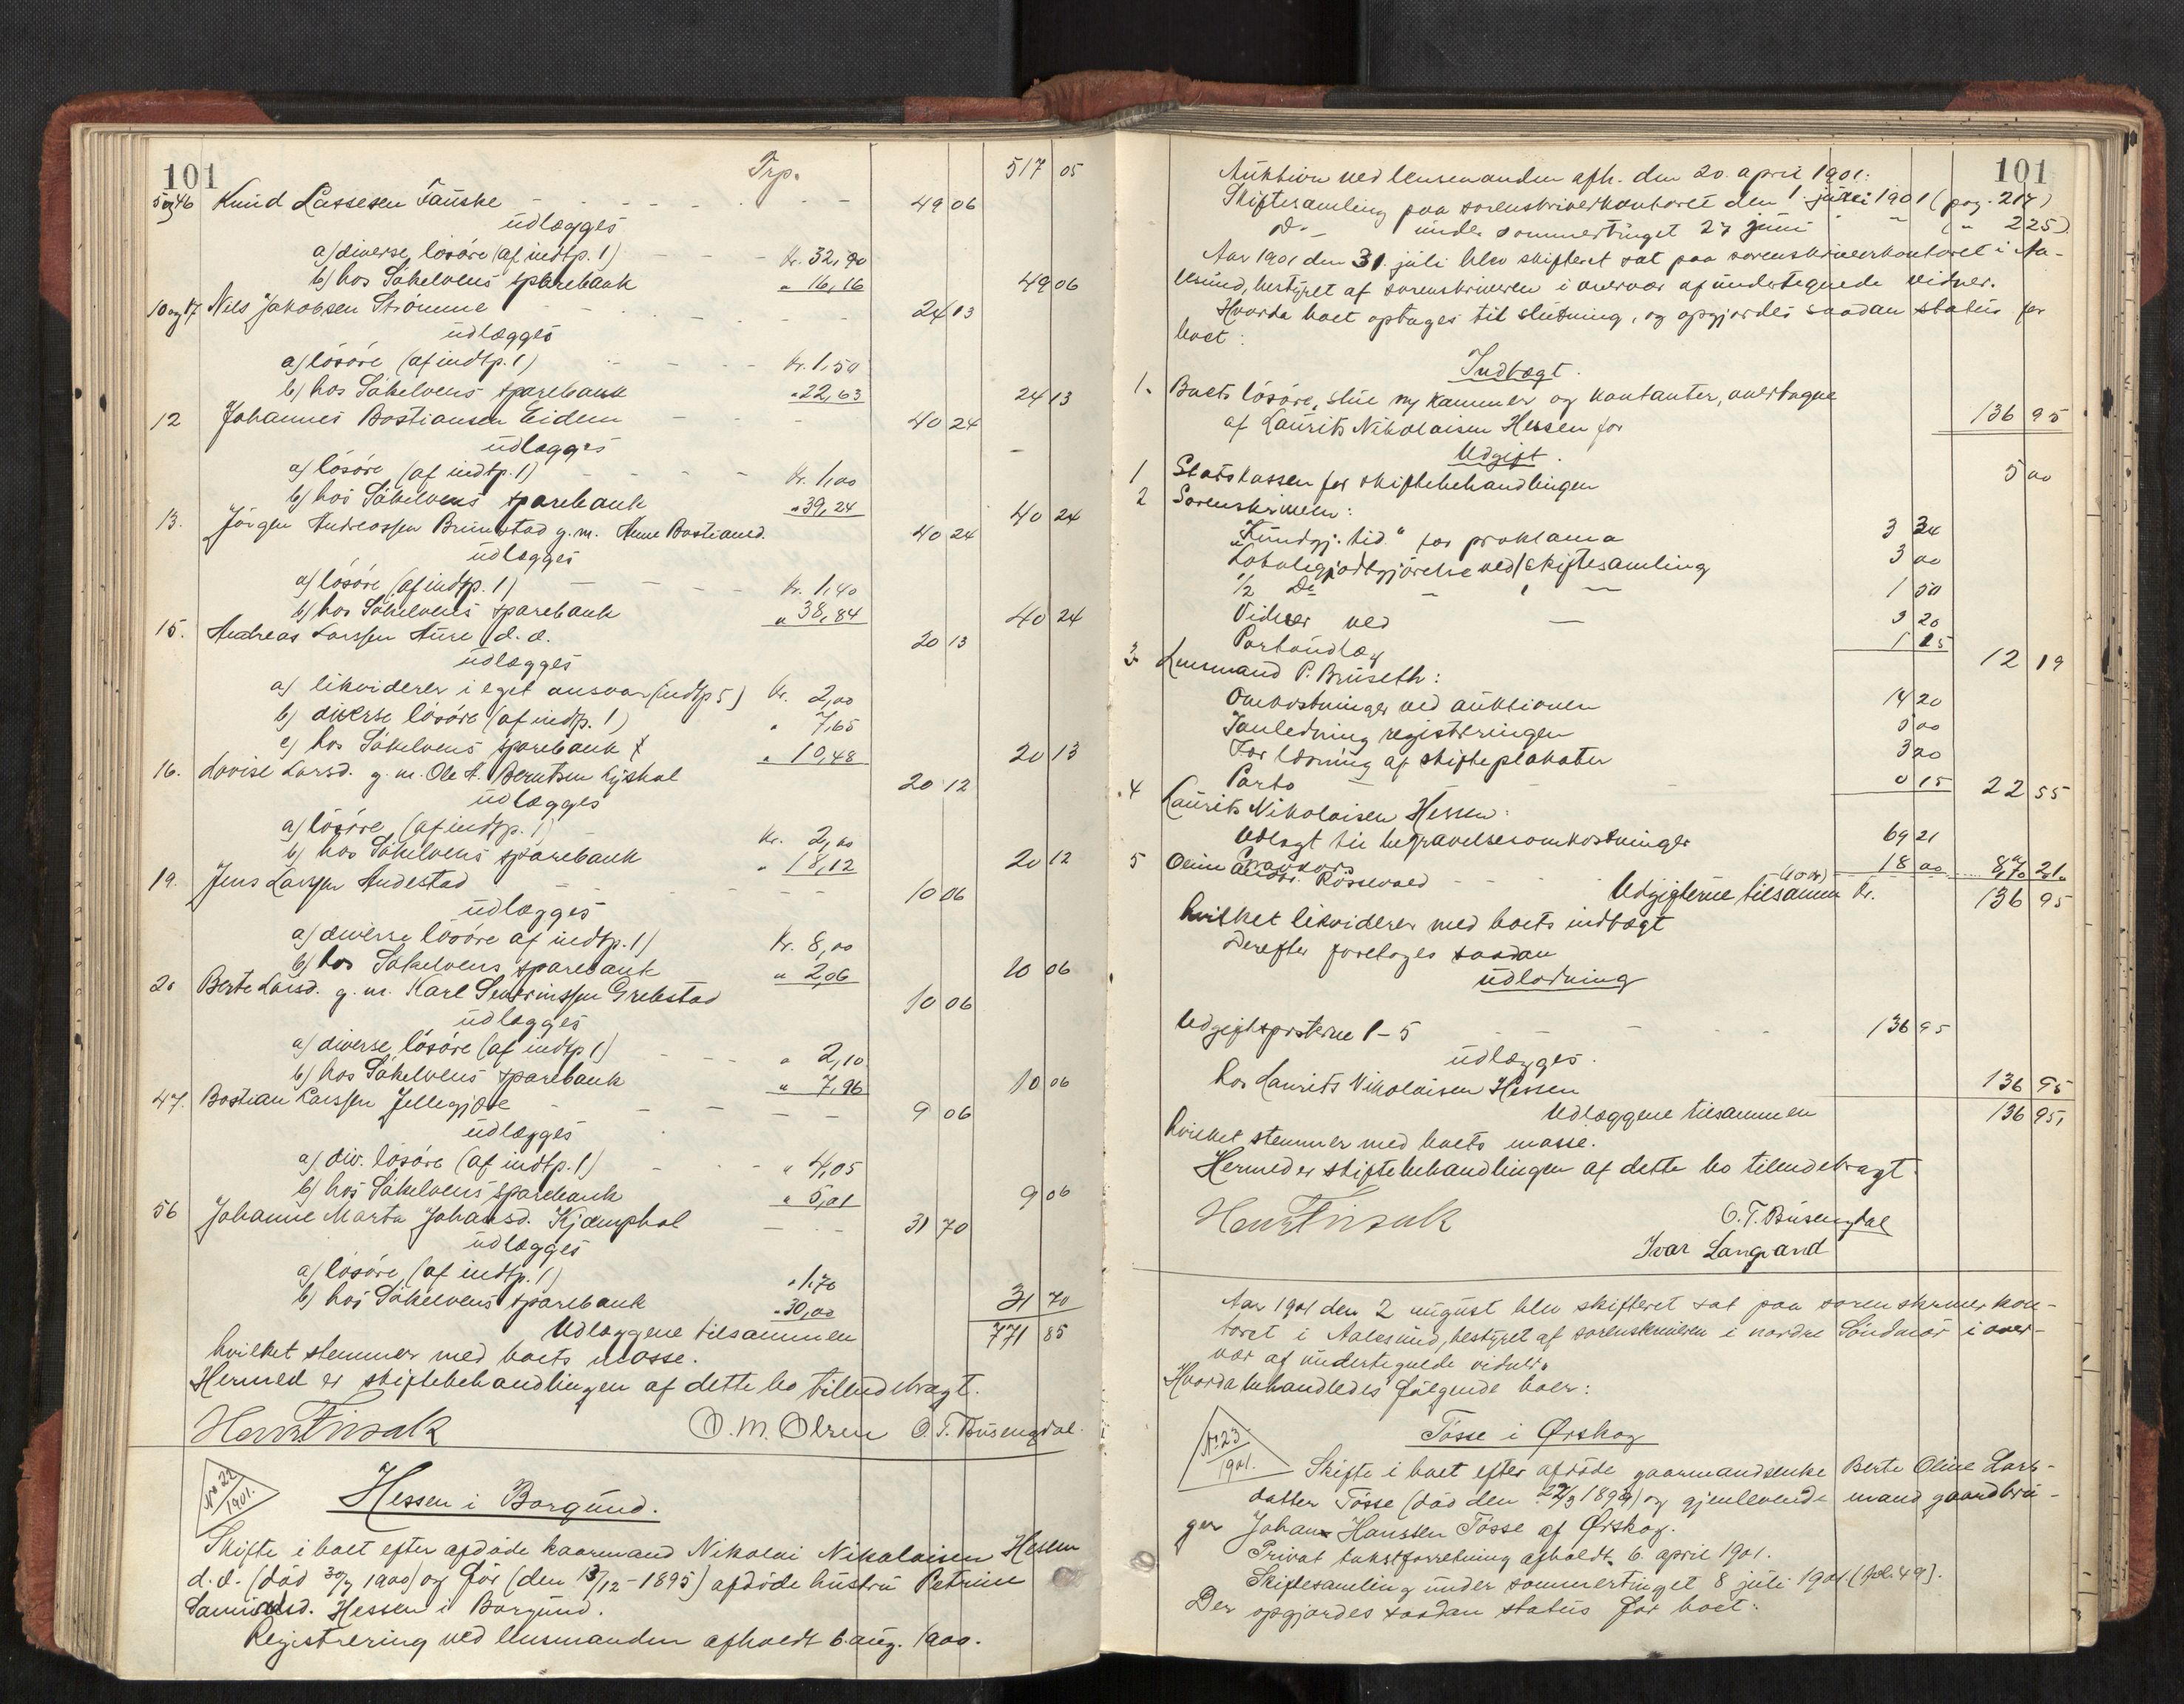 101
Trp. 517 05
5 og 46 Knud Lassesen Fauske - - - 49 06
udlægges
a) diverse løsøre (af indtp. 1) - - - Kr. 32,90
b) hos Søkelvens sparebank " 16,16 49 06
10 og 17 Nils Jakobsen Strømme - - - 24 13
udlægges
a) løsøre (af indtp. 1) - - - Kr. 1,50
b) hos Søkelvens sparebank " 22,63 24 13
12 Johannes Bastiansen Eidem - - - 40 24
udlægges
a) løsøre (af indtp. 1) - - - Kr. 1,00
b) hos Søkelvens sparebank " 39,24 40 24
13. Jørgen Andreassen Brunstad g. m. Anne Bastiansd. 40 24
udlægges
a) løsøre (af indtp. 1) - - - Kr. 1,40
b) hos Søkelvens sparebank " 38,84 40 24
15. Andreas Larssen Aure d. æ. 20 13
udlægges
a) likviderer i eget ansvar (indtp 5) Kr. 2,00
b) diverse løsøre (af indtp. 1) " 7,65
c) hos Søkelvens sparebank " 10,48 20 13
16. Lovise Larsd. g. m. Ole A. Berntsen 20 12
udlægges
a) løsøre (af indtp. 1) - Kr. 2,00
b) hos Søkelvens sparebank " 18,12 20 12
19. Jens Larssen Andestad - - - 10 06
udlægges
a) diverse løsøre af indtp. 1) Kr. 8,00
b) hos Søkelvens sparebank " 2,06 10 06
20 Berte Larsd. g. m. Karl Severinssen Grebstad 10 06
udlægges
a) diverse løsøre (af indtp 1) - - - " 2,10
b) hos Søkelvens sparebank " 7,96 10 06
47. Bastian Larssen - - - 9 06
udlægges
a) div. løsøre (af indtp. 1) - - - " 4,05
b) hos Søkelvens sparebank " 5,01 9 06
56 Johanne Marta Johansd. Kjæmphol - - - 31 70
udlægges
a) løsøre (af indtp. 1) " 1,70
b) hos Søkelvens sparebank " 30,00 31 70
Udlæggene tilsammen 771 85
hvilket stemmer med boets masse.
Hermed er skiftebehandlingen af dette bo tilendebragt.
O. M. Olsen O. T. Busengdal.
No. 22 1901.
Hessen i Borgund.
Skifte i boet efter afdøde kaarmand Nikolai Nikolaisen Hessen
d. æ. (død 30/7 1900) og før (den 13/12 - 1895) afdøde hustru Petrine
Samuelsd. Hessen i Borgund.
Registrering ved lensmanden afholdt 6. aug. 1900.
101
Auktion ved lensmanden afh. den 20. april 1901.
Skiftesamling paa sorenskriverkontoret den 1. juni 1901 (pag. 217)
Do - under sommertinget 27 juni " - ( " 225)
Aar 1901 den 31. juli blev skifteret sat paa sorenskriverkontoret i Aa-
lesund, bestyret af sorenskriveren i overvær af undertegnede vidner.
Hvorda boet optages til slutning, og opgjordes saadan status for
boet:
Indtægt.
1. Boets løsøre, stue og kammer og kontanter, overtagne
af Laurits Nikolaisen Hessen for 136 95
Udgift.
1 Statskassen for skiftebehandlingen 5 00
2 Sorenskriveren:
"Kundgj. tid." for proklama 3 34
Lokalegodtgjørelse ved 1 skiftesamling 3 00
1/2 Do - " - 1 50
Vidner ved - 3 20
Portoudlæg 1 15 12 19
3 Lensmand P. Bruseth:
Omkostninger ved auktionen 14 20
Ianledning registreringen 5 00
For læsning af skifteplakater 3 20
Porto - - - 0 15 22 55
4 Laurits Nikolaisen Hessen:
Udlagt til begravelsesomkostninger 69 21
5 Oline Røssevold - - - 18 00 87 21
Udgifterne tilsammen Kr. 136 95
hvilket likviderer med boets indtægt
Derefter foretages saadan
udlodning
Udgiftsposterne 1-5 - - - 136 95
udlægges.
hos Laurits Nikolaisen Hessen 136 95
Udlæggene tilsammen 136 95,
hvilket stemmer med boets masse.
Hermed er skiftebehandlingen af dette bo tilendebragt.
O. T. Busengdal
Ivar Langvand
Aar 1901 den 2 august blev skifteret sat paa sorenskriverkon-
toret i Aalesund, bestyret af sorenskriveren i nordre Søndmør i over-
vær af undertegnede vidner.
Hvorda behandledes følgende boer:
Tosse i Ørskog
No. 23 1901.
Skifte i boet efter afdøde gaardmandsenke Berte Oline Lars-
datter Tosse (død den 22/3 1899) og gjenlevende mand gaardbru-
ger Johan Hanssen Tosse af Ørskog.
Privat takstforretning afholdt 6. april 1901.
Skiftesamling under sommertinget 8 juli 1901. (fol. 49).
Der opgjordes saadan status for boet: